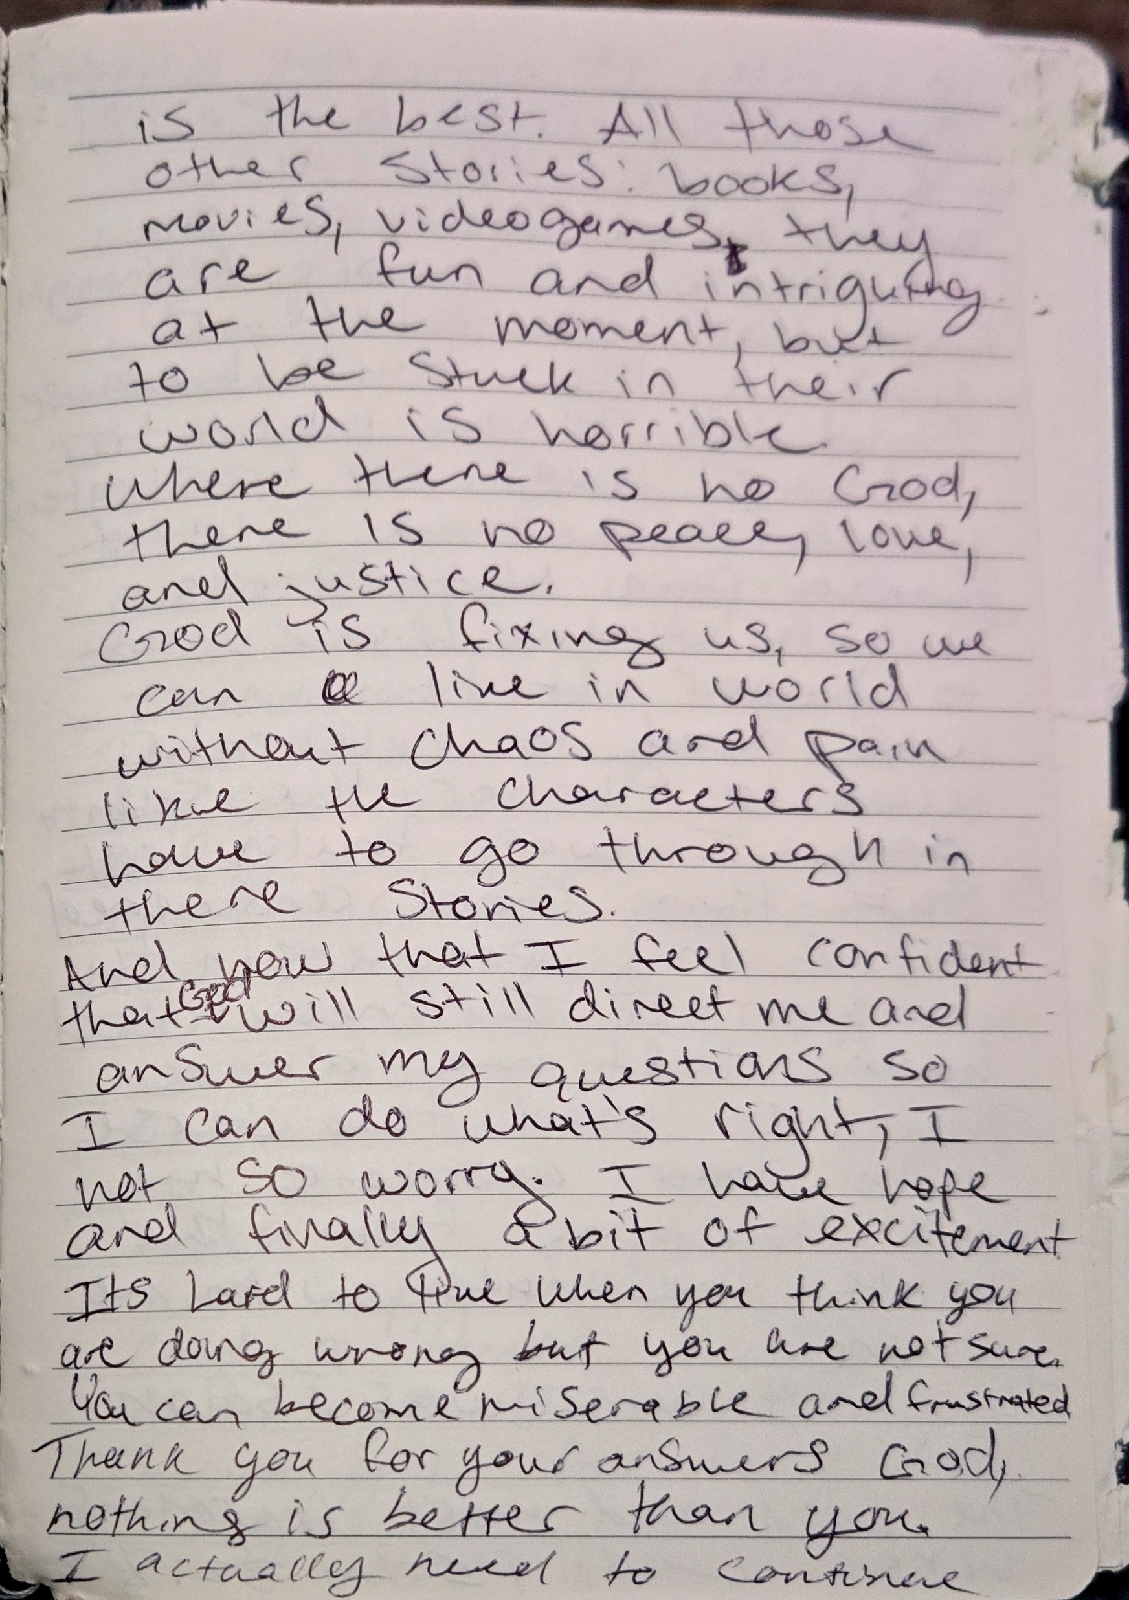 is the best. All those
other stories: books,
movies, videogames, they
are fun and intriguing
at the moment, but
to be stuck in their
world is horrible.
Where there is no God,
there is no peace, love,
and justice.
God is fixing us, so we
can live in world
without chaos and pain
like the characters
have to go through in
there stories.
And now that I feel confident
that God will still direct me and
answer my questions so
I can do what's right, I
not so worry. I have hope
and finally a bit of excitement
Its hard to live when you think you
are doing wrong but you are not sure.
You can become miserable and frustrated
Thank you for your answers God,
nothing is better than you.
I actually need to continue